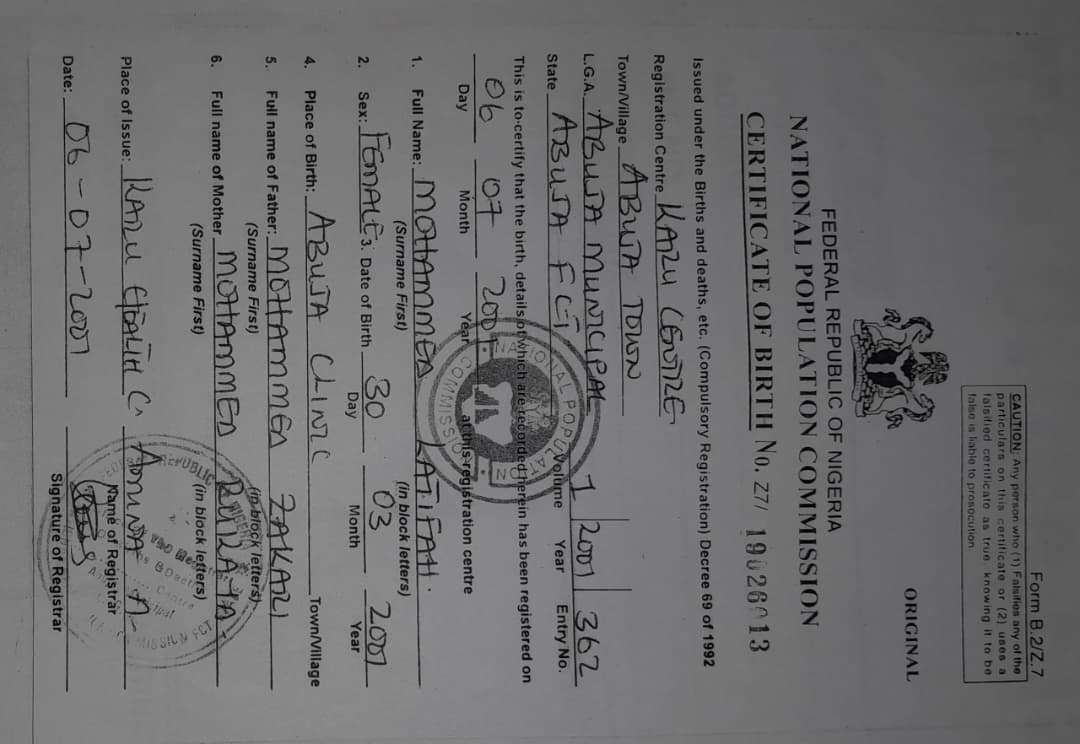 Form B.2/Z.7
CAUTION: Any person who (1) Falsifies any of the
particulars on this certificate or (2) uses a
falsified certificate as true, knowing it to be
false is liable to prosocution
ORIGINAL
FEDERAL REPUBLIC OF NIGERIA
NATIONAL POPULATION COMMISSION
CERTIFICATE OF BIRTH No. Z7/ 19026013
Issued under the Births and deaths, etc. (Compulsory Registration) Decree 69 of 1992
Registration Centre KARU CENTRE
Town/Village ABUJA TOWN
L.G.A. ABUJA MUNICIPAL 1 2001 362
State ABUJA FCT Volume Year Entry No.
This is to certify that the birth, details of which are recorded herein has been registered on
06 07 2001
Day Month Year at this registration centre
1. Full Name: MOHAMMED LATIFAH.
(Surname First) (In block letters)
2. Sex: FEMALE 3. Date of Birth 30 03 2001
Day Month Year
4. Place of Birth: ABUJA CLINIC Town/Village
5. Full name of Father: MOHAMMED ZAKARI
(Surname First) (in block letters)
6. Full name of Mother MOHAMMED RUKAYA
(Surname First) (in block letters)
Place of Issue: KARU HEALTH C. A.
Name of Registrar
Date: 06-07-2001
Signature of Registrar
NATIONAL POPULATION COMMISSION